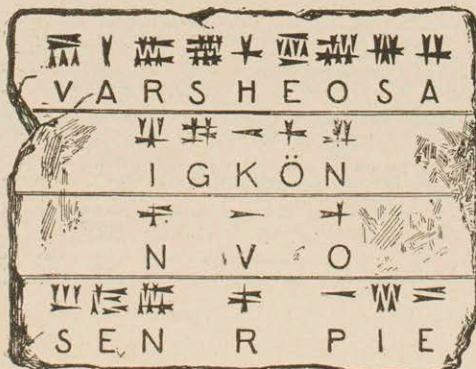 VARSHEOSA
IGKÖN
N V O
SEN R PIE